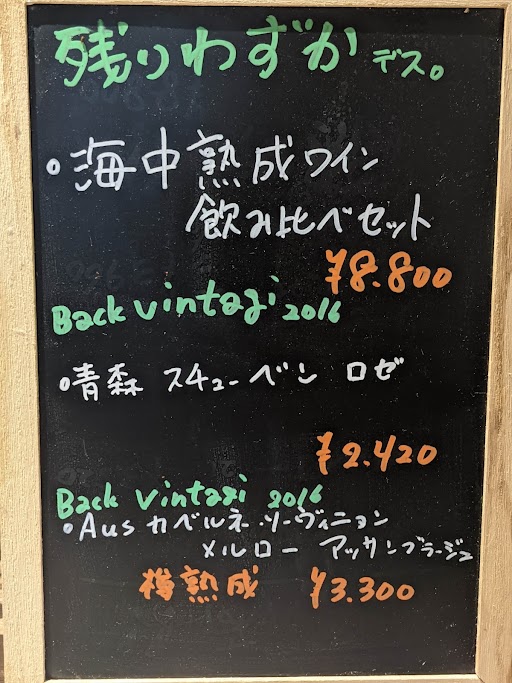 残りわずかデス。
・海中熟成ワイン
飲み比べセット
¥8.800
Back vintagi 2016
・青森 スチューベン ロゼ
¥2.420
Back vintagi 2016
・Aus カベルネ・ソーヴィニョン
メルロー アッサンブラージュ
樽熟成 ¥3.300